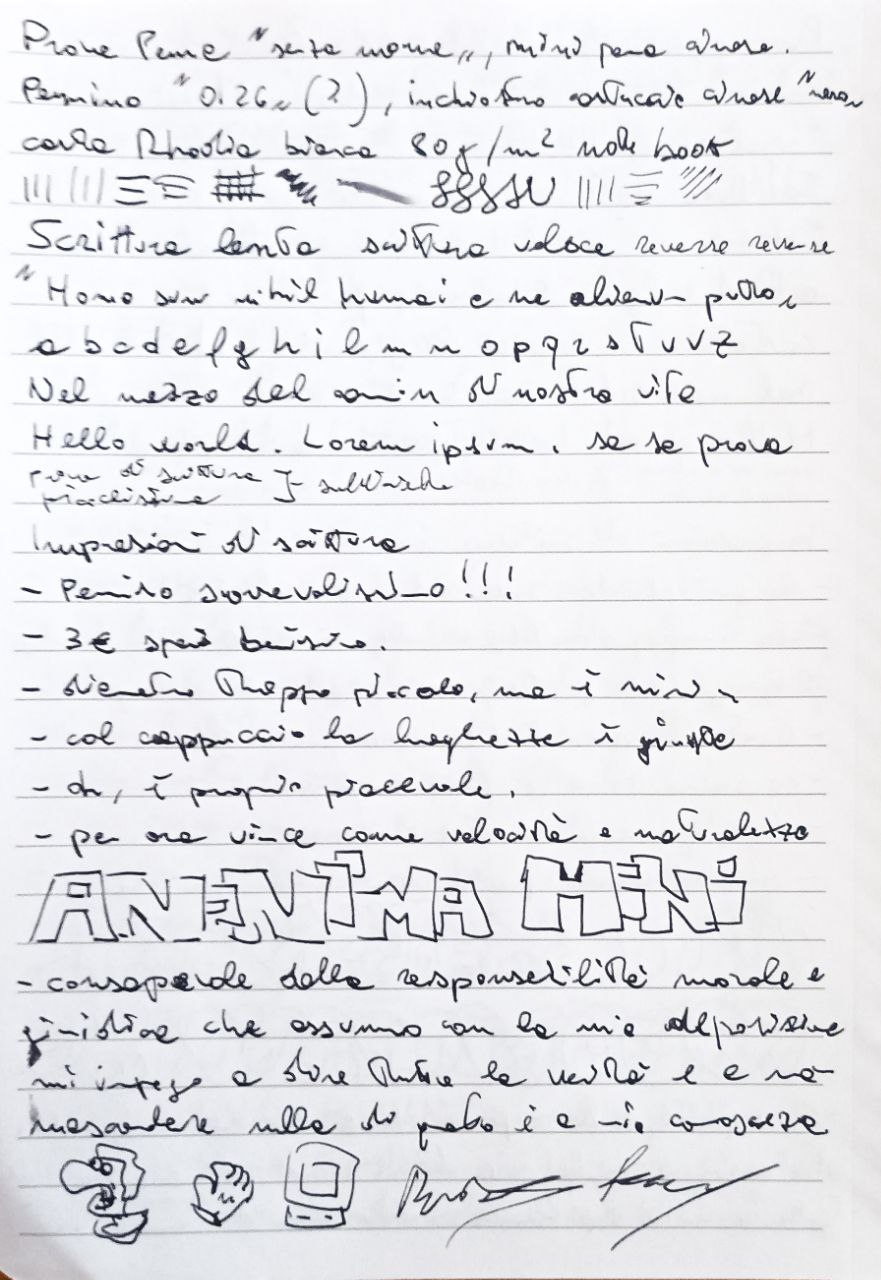 Prova Penna "senza nome", mini penna cinese.
Pennino "0.26" (?), inchiostro cartucce cinese "nero"
carta Rhodia bianca 80g/m² note book
Scrittura lenta scrittura veloce reverse reverse
"Homo sum nihil humani a me alienum puto"
a b c d e f g h i l m n o p q r s t u v z
Nel mezzo del cammin di nostra vita
Hello world. Lorem ipsum. sa sa prova
prova di scrittura
piccolissima
Impressioni di scrittura
- Pennino scorrevolissimo!!!
- 3€ spesi benissimo.
- diametro troppo piccolo, ma è mini
- col cappuccio la lunghezza è giusta
- ok, è proprio piacevole.
- per ora vince come velocità e naturalezza
ANENIMA MINI
- consapevole della responsabilità morale e
giuridica che assumo con la mia deposizione
mi impegno a dire tutta la verità e a non
nascondere nulla di quanto è a mia conoscenza